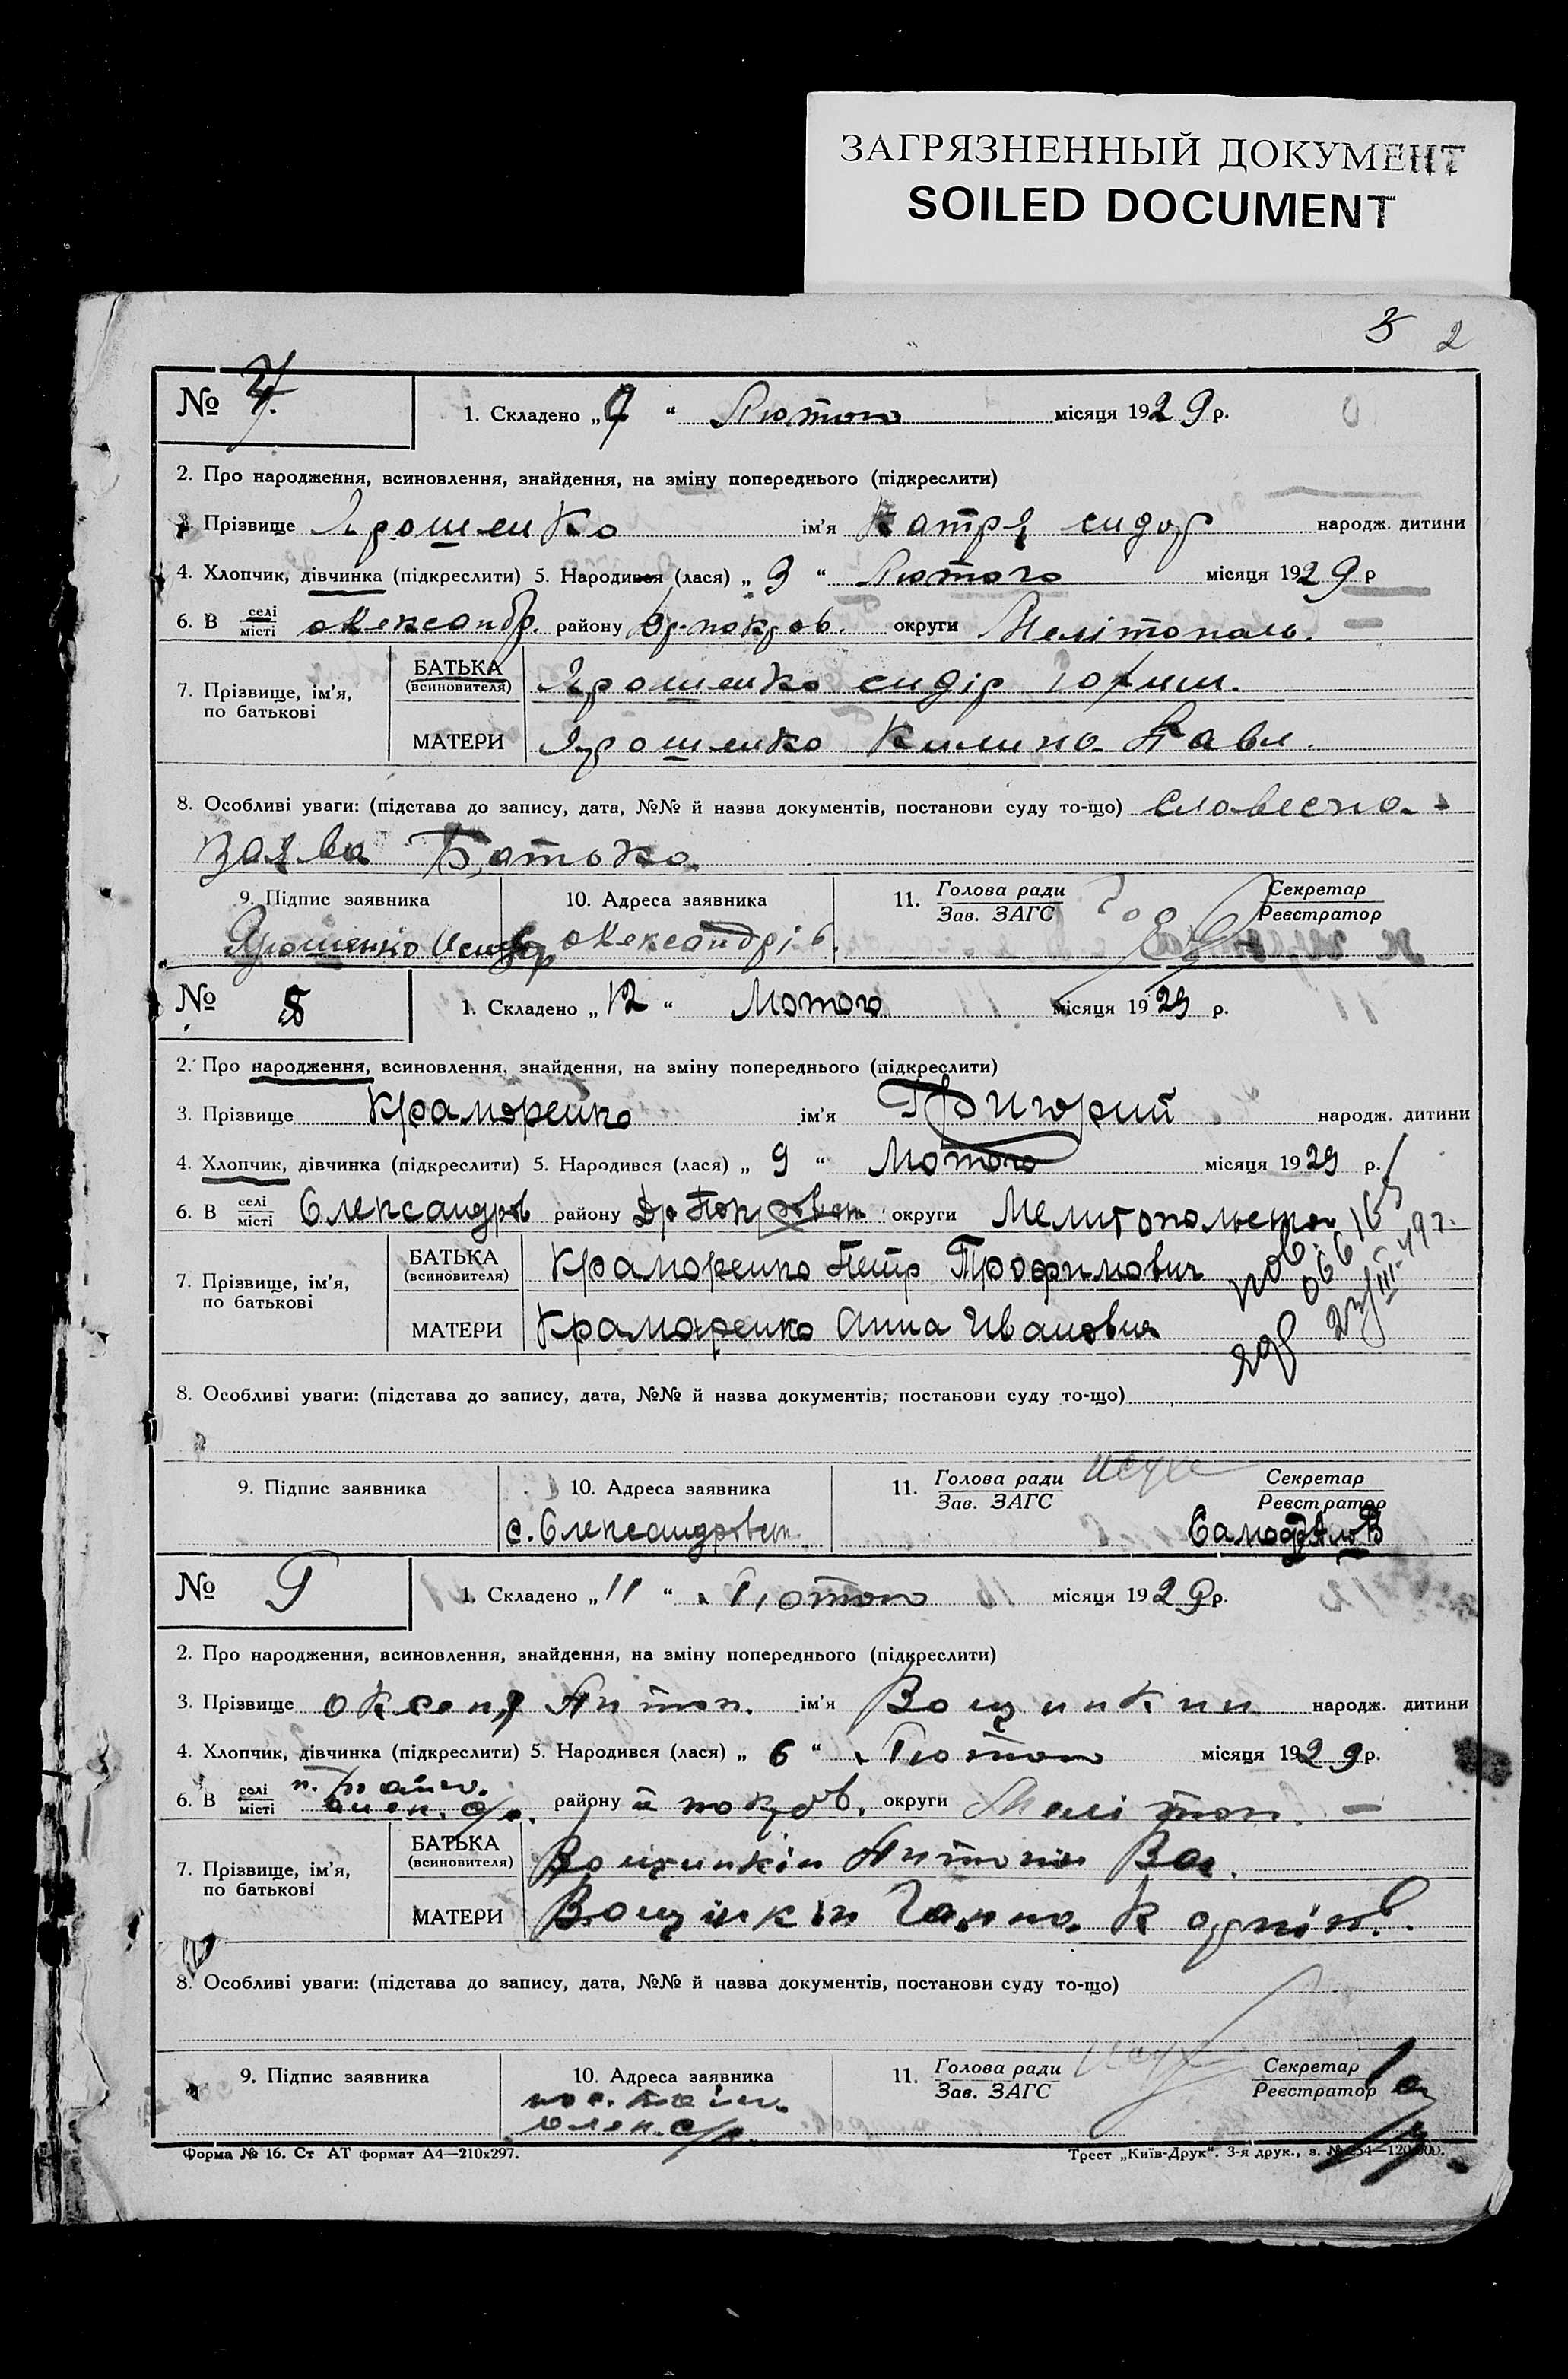 ЗАГРЯЗНЕННЫЙ ДОКУМЕНТ
SOILED DOCUMENT
2
№ 7.
1. Складено „ “ Лютого місяця 1929 р.
2. Про народження, всиновлення, знайдення, на зміну попереднього (підкреслити)
3. Прізвище Ярошенко ім'я Катря сидор народж. дитини
4. Хлопчик, дівчинка (підкреслити) 5. Народився (лася) „ 3 “ Лютого місяця 1929 р
6. В селі/місті олександр. району покров. округи Мелітополь.
БАТЬКА (всиновителя) Ярошенко сидір Юхим.
7. Прізвище, ім'я, по батькові
МАТЕРИ Ярошенко Килина Павл.
8. Особливі уваги: (підстава до запису, дата, №№ й назва документів, постанови суду то-що) словесна
заява Батька
9. Підпис заявника 10. Адреса заявника 11. Голова ради/Зав. ЗАГС Секретар/Реєстратор
Ярошенко олександрів.
№ 8
1. Складено „ 12 “ Лютого місяця 1929 р.
2. Про народження, всиновлення, знайдення, на зміну попереднього (підкреслити)
3. Прізвище Краморенко ім'я Григорий народж. дитини
4. Хлопчик, дівчинка (підкреслити) 5. Народився (лася) „ 9 “ Лютого місяця 1929 р.
6. В селі/місті Олександров району округи Мелитопольська
БАТЬКА (всиновителя) Краморенко Петр Трофимович
7. Прізвище, ім'я, по батькові
МАТЕРИ Краморенко Анна Ивановна
8. Особливі уваги: (підстава до запису, дата, №№ й назва документів, постанови суду то-що)
9. Підпис заявника 10. Адреса заявника 11. Голова ради/Зав. ЗАГС Секретар/Реєстратор
с. Олександровка
№ 9
1. Складено „ 11 “ Лютого місяця 1929 р.
2. Про народження, всиновлення, знайдення, на зміну попереднього (підкреслити)
3. Прізвище Оксеня Антон. ім'я Вощинкин народж. дитини
4. Хлопчик, дівчинка (підкреслити) 5. Народився (лася) „ 6 “ Лютого місяця 1929 р.
6. В селі/місті району покров. округи Мелітоп.
БАТЬКА (всиновителя) Вощинкін Антон
7. Прізвище, ім'я, по батькові
МАТЕРИ Вощинкін Ганна Корніів.
8. Особливі уваги: (підстава до запису, дата, №№ й назва документів, постанови суду то-що)
9. Підпис заявника 10. Адреса заявника 11. Голова ради/Зав. ЗАГС Секретар/Реєстратор
Форма № 16. Ст АТ формат А4—210х297. Трест „Київ-Друк“. 3-я друк., з. № 254—120.000.